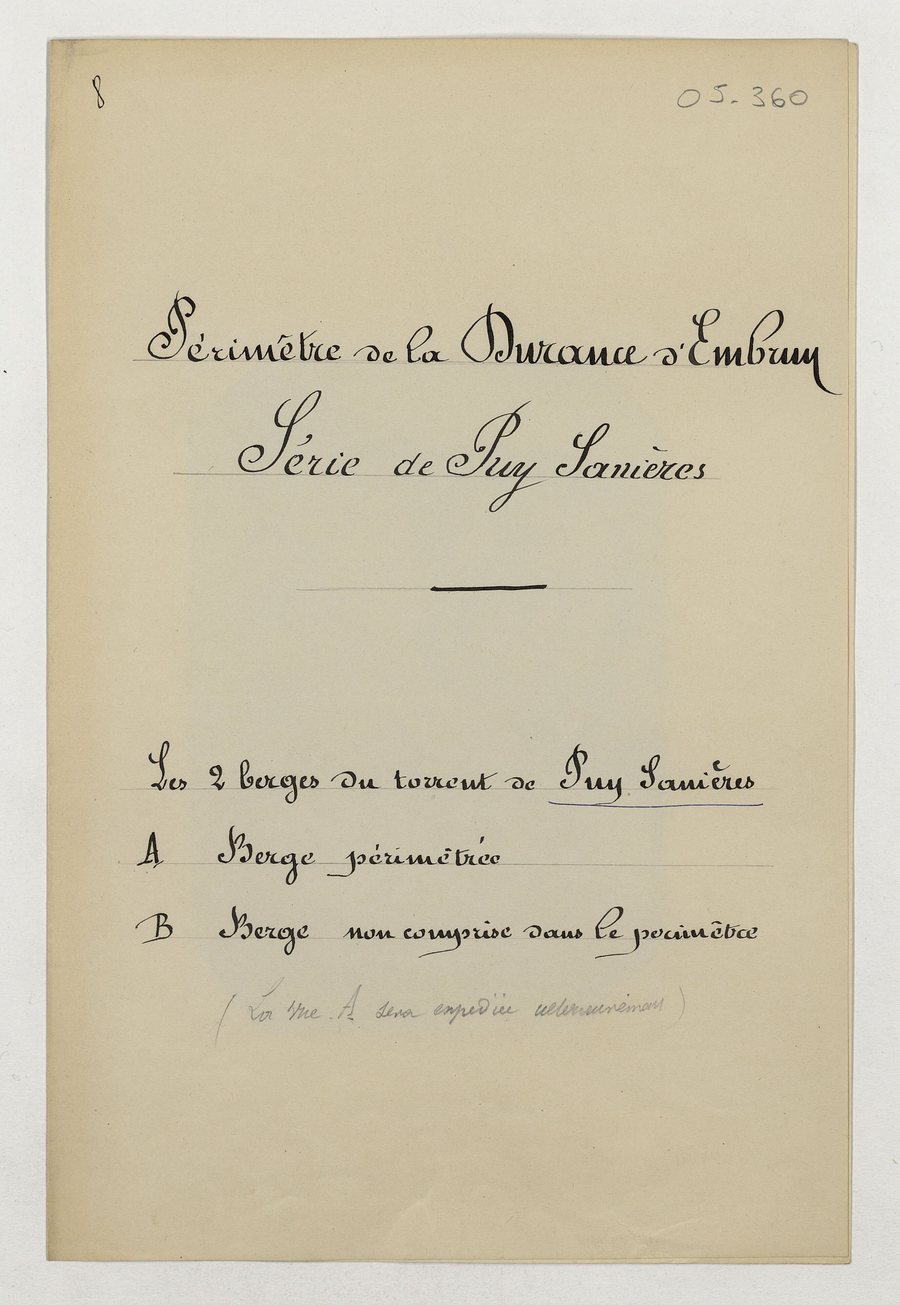 8
05.360
Périmètre de la Durance d'Embrun
Série de Puy Sanières
Les 2 berges du torrent de Puy Sanières
A Berge périmètrée
B Berge non comprise dans le périmètre
(La vue A sera expédiée ultérieurement)